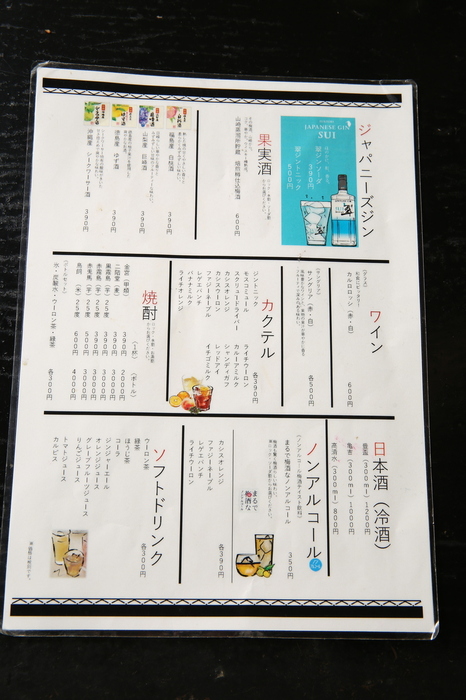 ジャパニーズジン
JAPANESE GIN
SUI
翠ジンソーダ
390円
翠ジントニック
500円
果実酒
山崎蒸溜所貯蔵 焙煎樽仕込梅酒 600円
福島産 白桃酒 390円
山梨産 巨峰酒 390円
徳島産 ゆず酒 390円
沖縄産 シークワーサー酒 390円
ワイン
カルロロッシ(赤・白) 600円
サングリア(赤・白) 各500円
カクテル
各390円
ジントニック
モスコミュール
スクリュードライバー
カシスオレンジ
カシスウーロン
ファジーネーブル
レゲエパンチ
バナナミルク
ライチオレンジ
ライチウーロン
カルーアミルク
シャンディガフ
レッドアイ
イチゴミルク
焼酎
(一杯) (ボトル)
金宮(甲類) 390円 2000円
二階堂(麦) 390円 3000円
黒霧島(芋)25度 390円 3000円
赤霧島(芋)25度
赤兎馬(芋)25度 500円
鳥飼(米)25度 600円 4000円
(ボトルセット)
水・炭酸水・ウーロン茶・緑茶 各300円
日本酒(冷酒)
(300ml)1200円
(300ml)1000円
高清水(300ml)800円
ノンアルコール
(ノンアルコール梅酒テイスト飲料)
まるで梅酒なノンアルコール 350円
まるで梅酒な
カシスオレンジ
ファジーネーブル
レゲエパンチ
ライチウーロン
各390円
ソフトドリンク
各300円
ウーロン茶
緑茶
ほうじ茶
コーラ
ジンジャーエール
オレンジジュース
グレープフルーツジュース
りんごジュース
トマトジュース
カルピス
※価格は税別です。